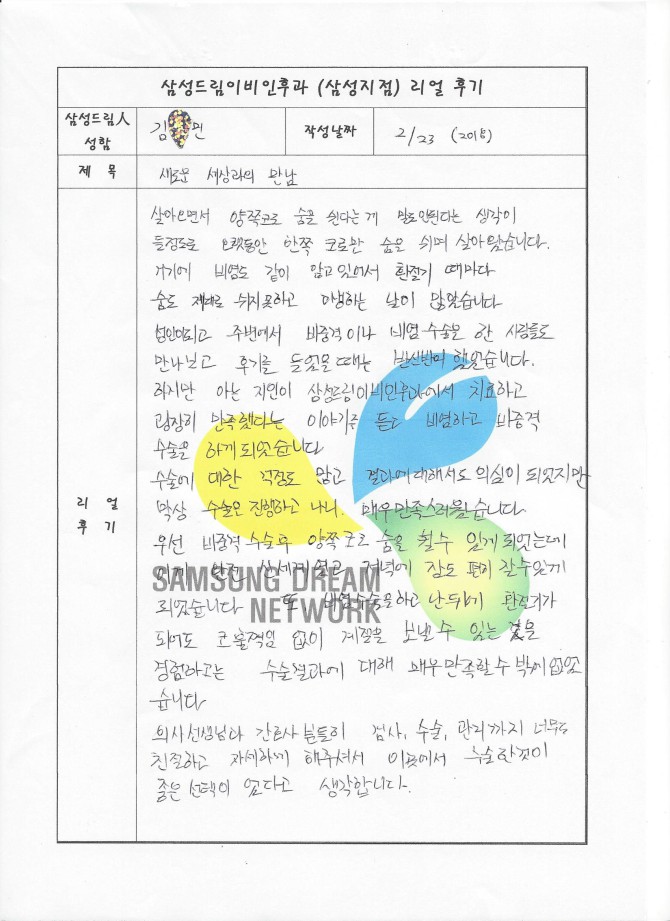 삼성드림이비인후과 (삼성지점) 리얼 후기
삼성드림人
성함
김 민
작성날짜
2/23 (2018)
제 목
새로운 세상과의 만남
리 얼
후 기
살아오면서 양쪽코로 숨을 쉰다는게 말도안된다는 생각이
들정도로 오랫동안 한쪽 코로만 숨을 쉬며 살아왔습니다.
거기에 비염도 같이 앓고있어서 환절기 때마다
숨도 제대로 쉬지못하고 고생하는 날이 많았습니다
성인이되고 주변에서 비중격이나 비염수술을 한 사람들도
만나보고 후기를 들었을때는 반신반의 했었습니다.
하지만 아는 지인이 삼성드림이비인후과에서 치료하고
굉장히 만족했다는 이야기를 듣고 비염하고 비중격
수술을 하게되었습니다
수술에 대한 걱정도 많고 결과에대해서도 의심이 되었지만
막상 수술을 진행하고 나니. 매우만족스러웠습니다
우선 비중격 수술후 양쪽코로 숨을 쉴수 있게되었는데
이게 완전 신세계였고 저녁에 잠도 편히 잘수있게
되었습니다 또, 비염수술을하고 난뒤에 환절기가
되어도 코훌쩍임 없이 계절을 보낼수 있는 것을
경험하고는 수술결과에 대해 매우만족할수 밖에없었
습니다
의사선생님과 간호사 분들이 검사, 수술, 관리까지 너무도
친절하고 자세하게 해주셔서 이곳에서 수술한것이
좋은선택이 었다고 생각합니다.
SAMSUNG DREAM
NETWORK